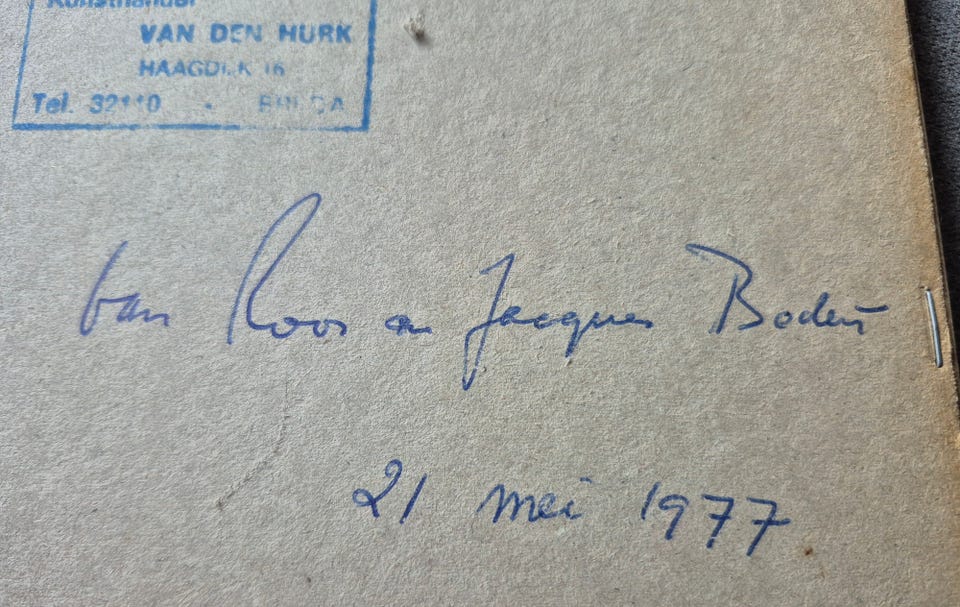 Kunsthandel
VAN DEN HURK
HAAGDIJK 16
Tel. 32110 - BREDA
van Roos en Jacques
21 mei 1977